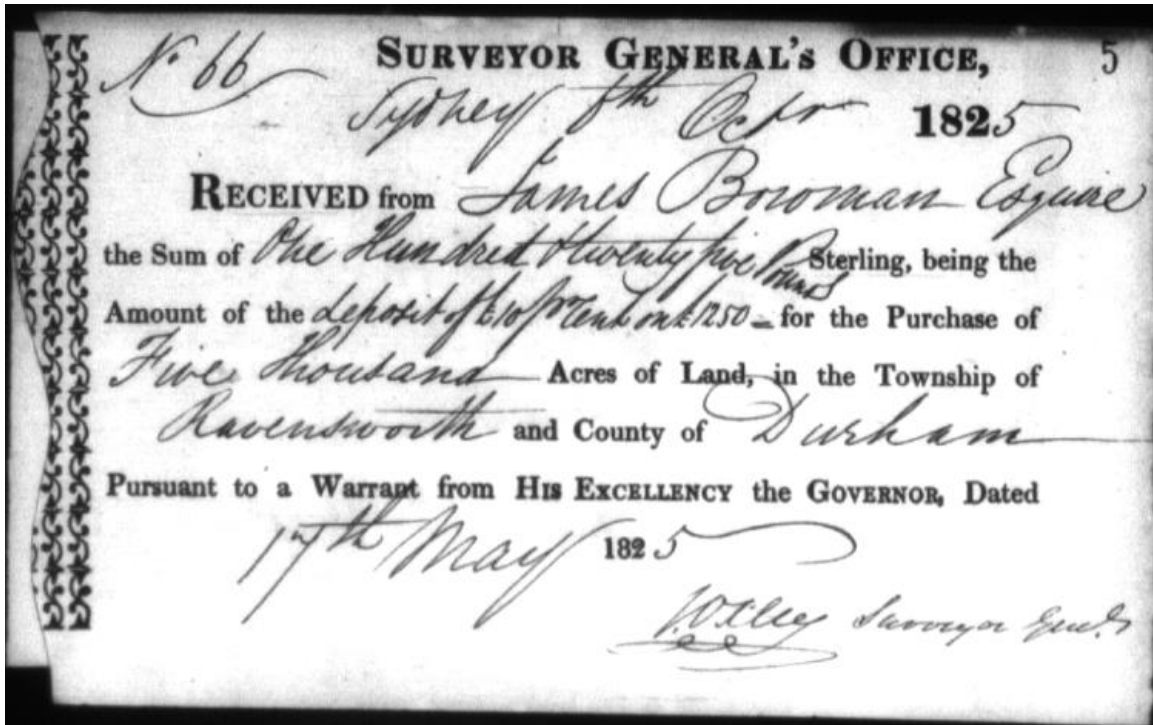 No 66 SURVEYOR GENERAL'S OFFICE, 5
Sydney 8th Octr 1825
RECEIVED from James Bowman Esquire
the Sum of One Hundred & twenty five Pounds Sterling, being the
Amount of the deposit of £10 pr Cent on £1250 – for the Purchase of
Five Thousand Acres of Land, in the Township of
Ravensworth and County of Durham
Pursuant to a Warrant from HIS EXCELLENCY the GOVERNOR, Dated
17th May 1825
J Oxley Surveyor Genl.